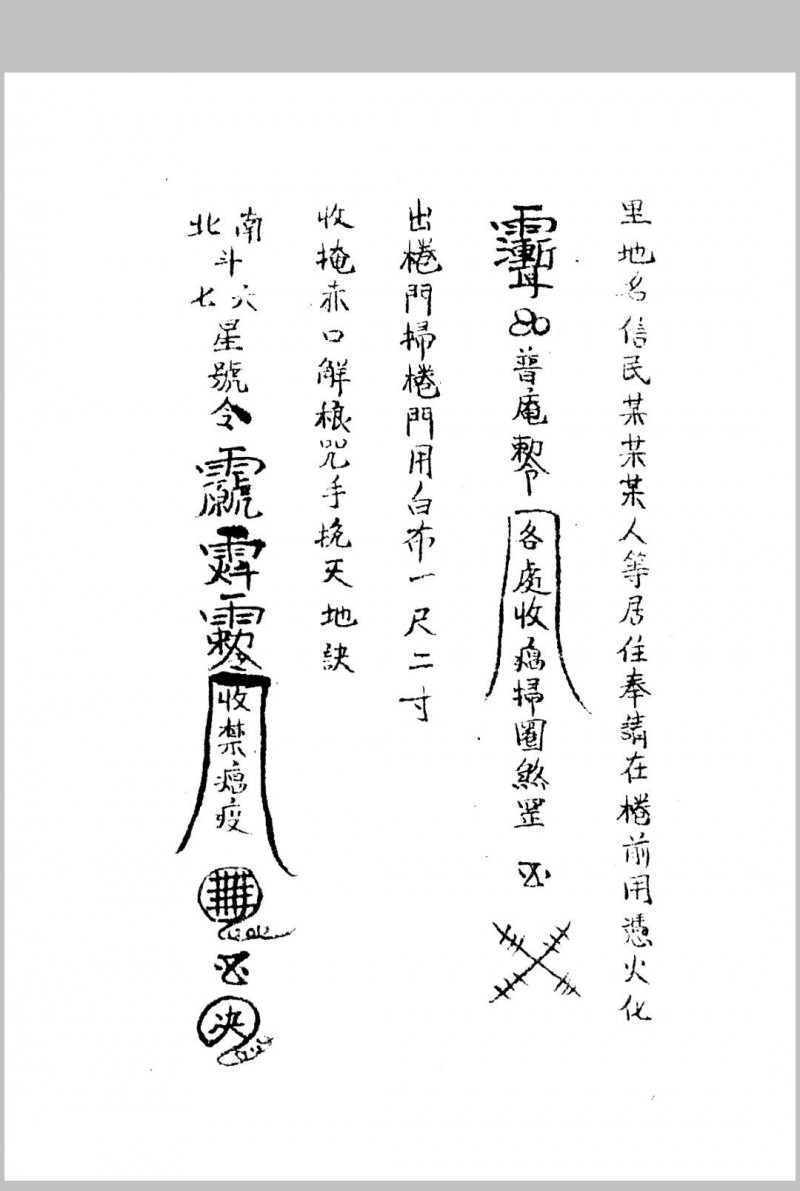 里地名信民某某某人等居住奉請在棬前用憑火化
普庵勅令各處收瘟掃圈煞罡
出棬門掃棬門用白布一尺二寸
收掩赤口解粮咒手挽天地訣
南北斗六七星號令
收禁瘟疫
决